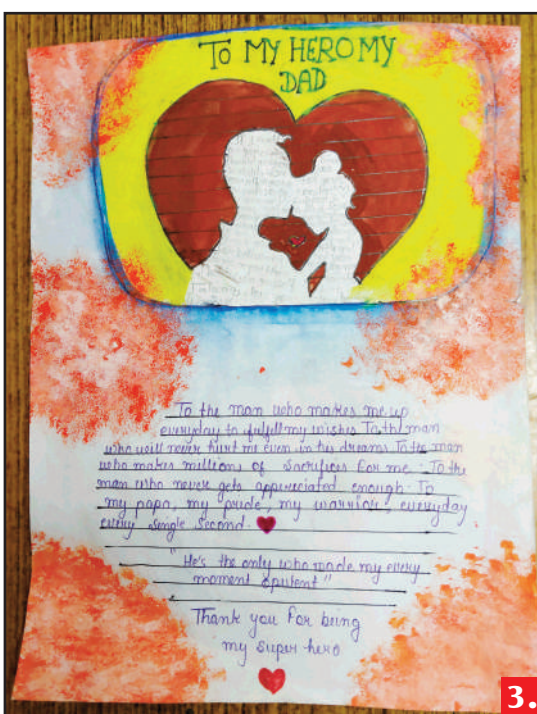 TO MY HERO MY
DAD
To the man who makes me up
everyday to fulfill my wishes To the man
who will never hurt me even in his dreams To the man
who makes millions of Sacrifices for me. To the
man who never gets appreciated enough. To
my papa, my pride, my warrior, everyday
every single second.
"He's the only who made my every
moment opulent"
Thank you for being
my super-hero
3.